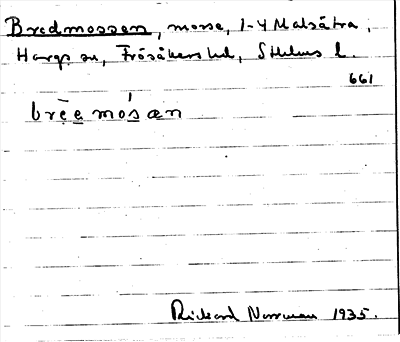 Bredmossen, mosse, 1-4 Malsätra,
Hargs sn, Frösåkers hd, Sthlms l.
661
brēemósæn
Rickard Norrman 1935.